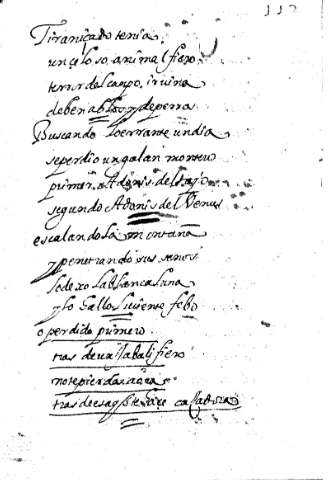 117
Tiraniçado tenia
un çeloso animal fiero
terror del campo, i ruina
de benablos y de perros
Buscando lo errante un dia
se perdio un galan montero
primer Adonis del tajo
segundo Adonis del Venus
escalando la montaña
y penetrando sus senos
se dexo la blanca luna
y lo hallo luciente febo
o perdido primero
tras de un jabali fiero
no te pierdas aora
tras de esa que te huie caçadora